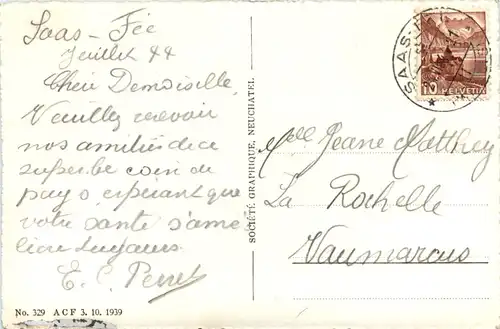 Saas-Fée
Juillet 44
Chère Demoiselle,
Veuillez recevoir
nos amitiés de ce
superbe coin de
pays, espérant que
votre santé s'amé
liore toujours
E. C. Perret
No. 329 ACF 3. 10. 1939
SOCIÉTÉ GRAPHIQUE, NEUCHATEL
SAAS-FEE
10 HELVETIA
Mlle Jeane Matthey
La Rochelle
Vaumarcus